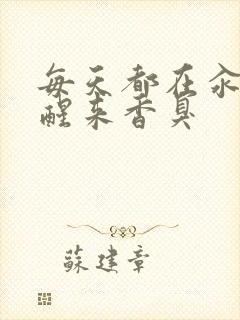 每天都在汆
醒来香臭
蘇建章